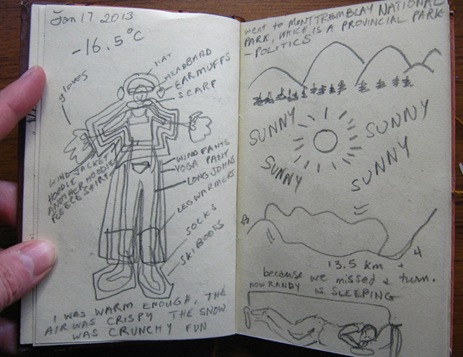 Jan 17 2013
-16.5°C
gloves
HAT
HEADBAND
EARMUFFS
SCARF
WIND JACKET
HOODIE
ANOTHER HOODIE
FLEECE SHIRT
WIND PANTS
YOGA PANT
LONG JOHNS
LEG WARMERS
SOCKS
SKI BOOTS
I WAS WARM ENOUGH, THE
AIR WAS CRISPY THE SNOW
WAS CRUNCHY FUN
WENT TO MONT TREMBLAY NATIONAL
PARK, WHICE IS A PROVINCIAL PARK
- POLITICS
SUNNY
SUNNY
SUNNY
SUNNY
13.5 km
because we missed a turn.
NOW RANDY IS SLEEPING